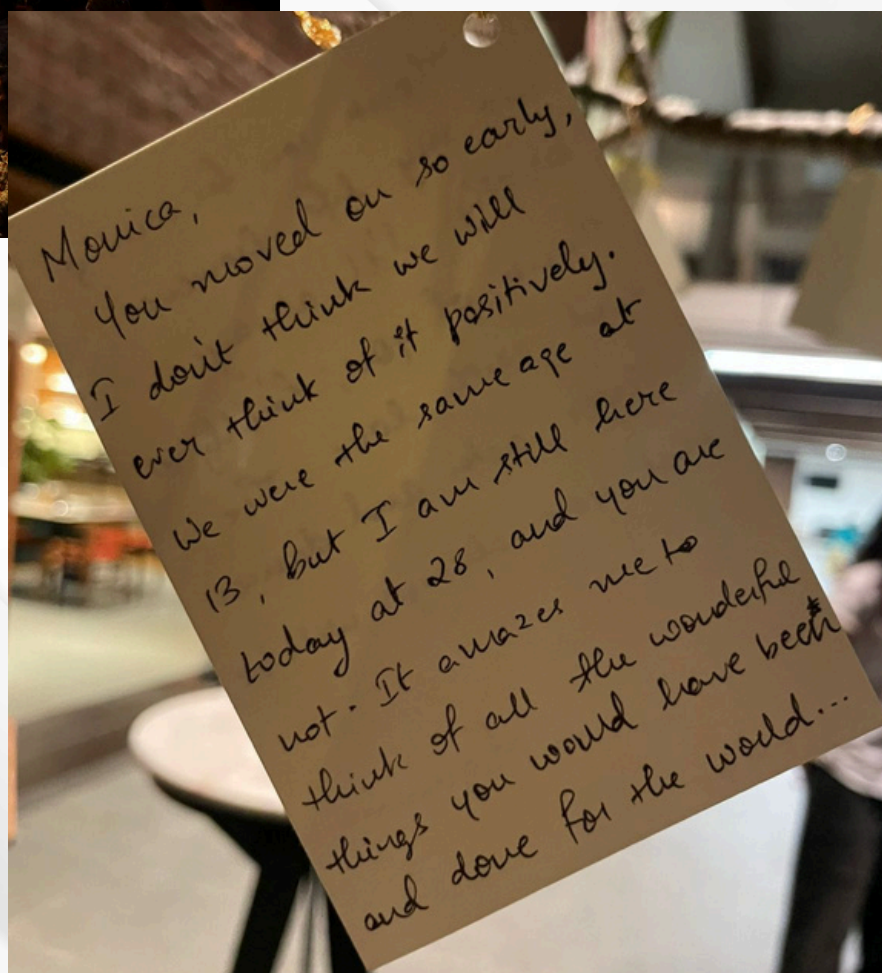 Monica,
You moved on so early,
I don't think we will
ever think of it positively.
We were the same age at
13, but I am still here
today at 28, and you are
not. It amazes me to
think of all the wonderful
things you would have been
and done for the world...